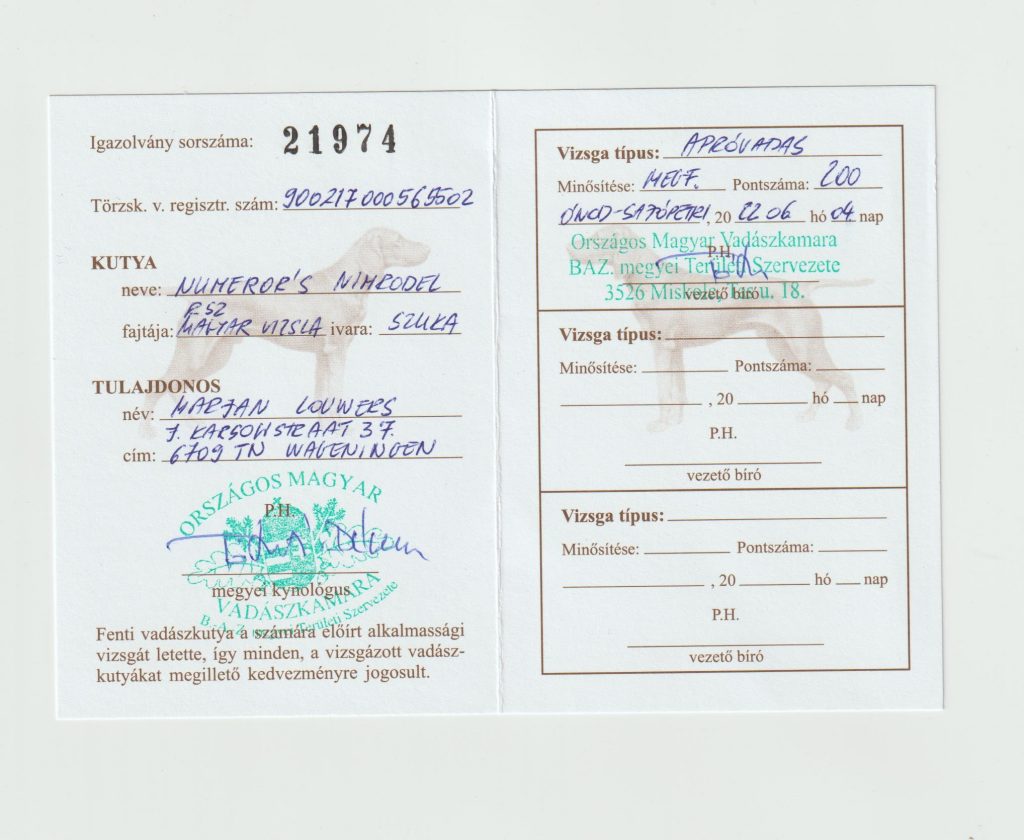 Igazolvány sorszáma: 21974
Törzsk. v. regisztr. szám: 900217000569502
KUTYA
neve: NUMEROR'S NIMRODEL
fajtája: RSZ MAGYAR VIZSLA ivara: SZUKA
TULAJDONOS
név: MARJAN LOUWERS
J. KARSONSTRAAT 37.
cím: 6709 TN WAGENINGEN
ORSZÁGOS MAGYAR
P.H.
megyei kynológus
VADÁSZKAMARA
B.-A.-Z. megyei Területi Szervezete
Fenti vadászkutya a számára előírt alkalmassági
vizsgát letette, így minden, a vizsgázott vadász-
kutyákat megillető kedvezményre jogosult.
Vizsga típus: APRÓVADAS
Minősítése: MEGF. Pontszáma: 200
ÓNOD-SAJÓPETRI, 20 22 06 hó 04 nap
Országos Magyar Vadászkamara
P.H.
BAZ. megyei Területi Szervezete
3526 Miskolc, u. 18.
vezető bíró
Vizsga típus:
Minősítése: Pontszáma:
, 20 hó nap
P.H.
vezető bíró
Vizsga típus:
Minősítése: Pontszáma:
, 20 hó nap
P.H.
vezető bíró